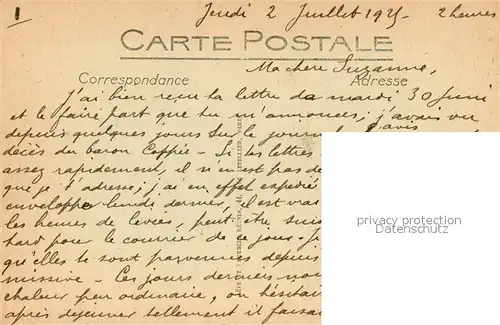 1
Jeudi 2 Juillet 1925 2 heures
CARTE POSTALE
Ma chere Suzanne,
Correspondance Adresse
J'ai bien reçu ta lettre du mardi 30 Juin
et le faire part que tu m'annonces; j'avais vu
depuis quelques jours sur le journal avis
décès du baron Caffiè - Si tes lettres
assez rapidement, il n'en est pas de
que je t'adresse; j'ai en effet expedié
enveloppe lundi dernier, il est vrai
les heures de levées, peut être suis
tard pour le courrier de ce jour. Je
qu'elles te sont parvenues depuis
missive - Ces jours derniers nous
chaleur peu ordinaire, on hésitait
après dejeuner tellement il faisait
privacy protection
Datenschutz